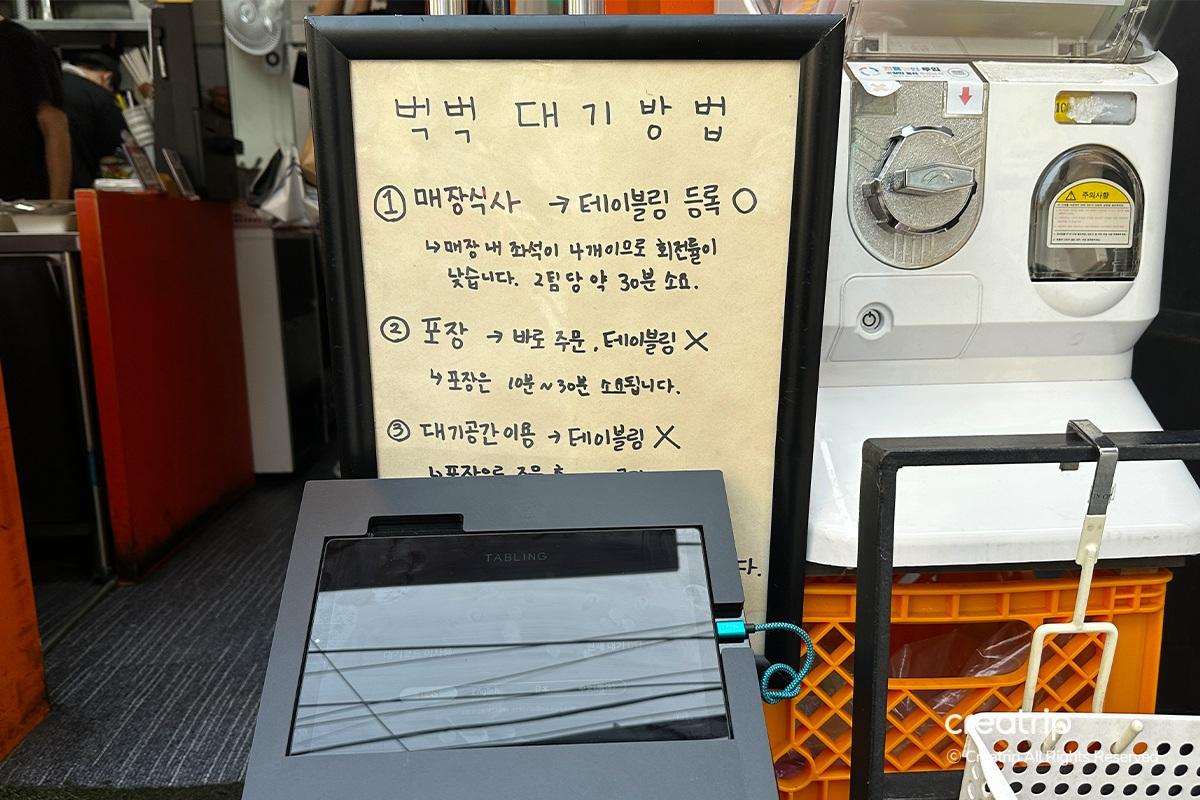 벅벅 대기방법
① 매장식사 → 테이블링 등록 ○
↳ 매장 내 좌석이 4개이므로 회전률이
낮습니다. 2팀당 약 30분 소요.
② 포장 → 바로 주문, 테이블링 X
↳ 포장은 10분~30분 소요됩니다.
③ 대기공간이용 → 테이블링 X
↳ 포장으로 주문 후
다.
TABLING
English
주의사항
creatrip
© Creatrip All Rights Reserved